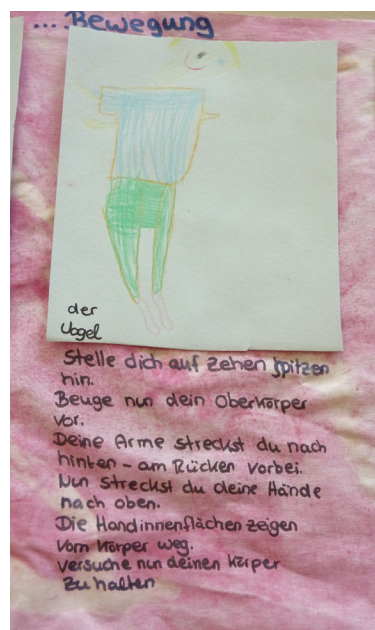 ... Bewegung
der
Vogel
Stelle dich auf Zehen spitzen
hin.
Beuge nun dein Oberkörper
vor.
Deine Arme streckst du nach
hinten - am Rücken vorbei.
Nun streckst du deine Hände
nach oben.
Die Handinnenflächen zeigen
vom Körper weg.
versuche nun deinen Körper
zu halten